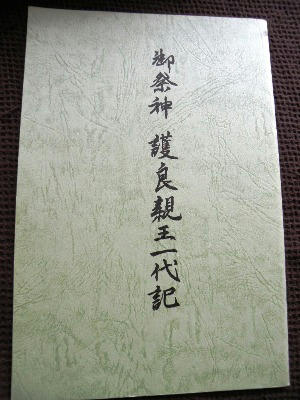 御祭神 護良親王一代記